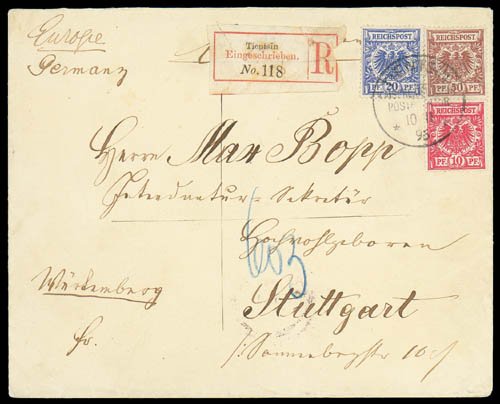 Europe
Germany
Tientsin
Eingeschrieben.
No. 118
R
REICHSPOST
20
PF. PF.
REICHSPOST
PF. PF.
REICHSPOST
10
PF. PF.
10
95
Herrn Max Bopp
Intendantur-Sekretär
Hochwohlgeboren
603
Würtemberg
Stuttgart
fr.